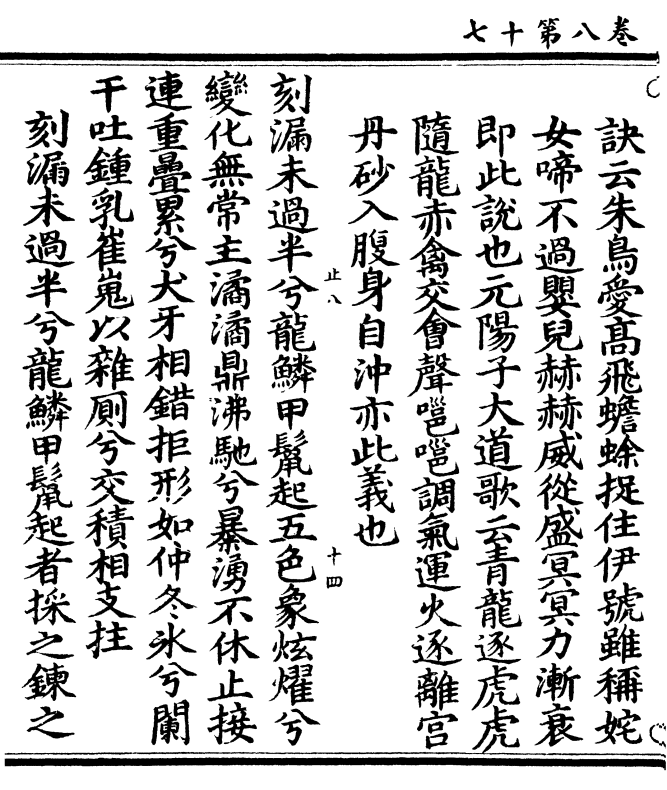 卷八第十七
訣云朱鳥愛高飛蟾蜍捉住伊號雖稱姹
女啼不過嬰兒赫赫威從盛冥冥力漸衰
即此說也元陽子大道歌云青龍逐虎虎
隨龍赤禽交會聲嗈嗈調氣運火逐離宮
丹砂入腹身自沖亦此義也
止八
十四
刻漏未過半兮龍鱗甲鬣起五色象炫燿兮
變化無常主潏潏鼎沸馳兮暴湧不休止接
連重疊累兮犬牙相錯拒形如仲冬氷兮闌
干吐鍾乳崔嵬以雜厠兮交積相支拄
刻漏未過半兮龍鱗甲鬣起者採之鍊之